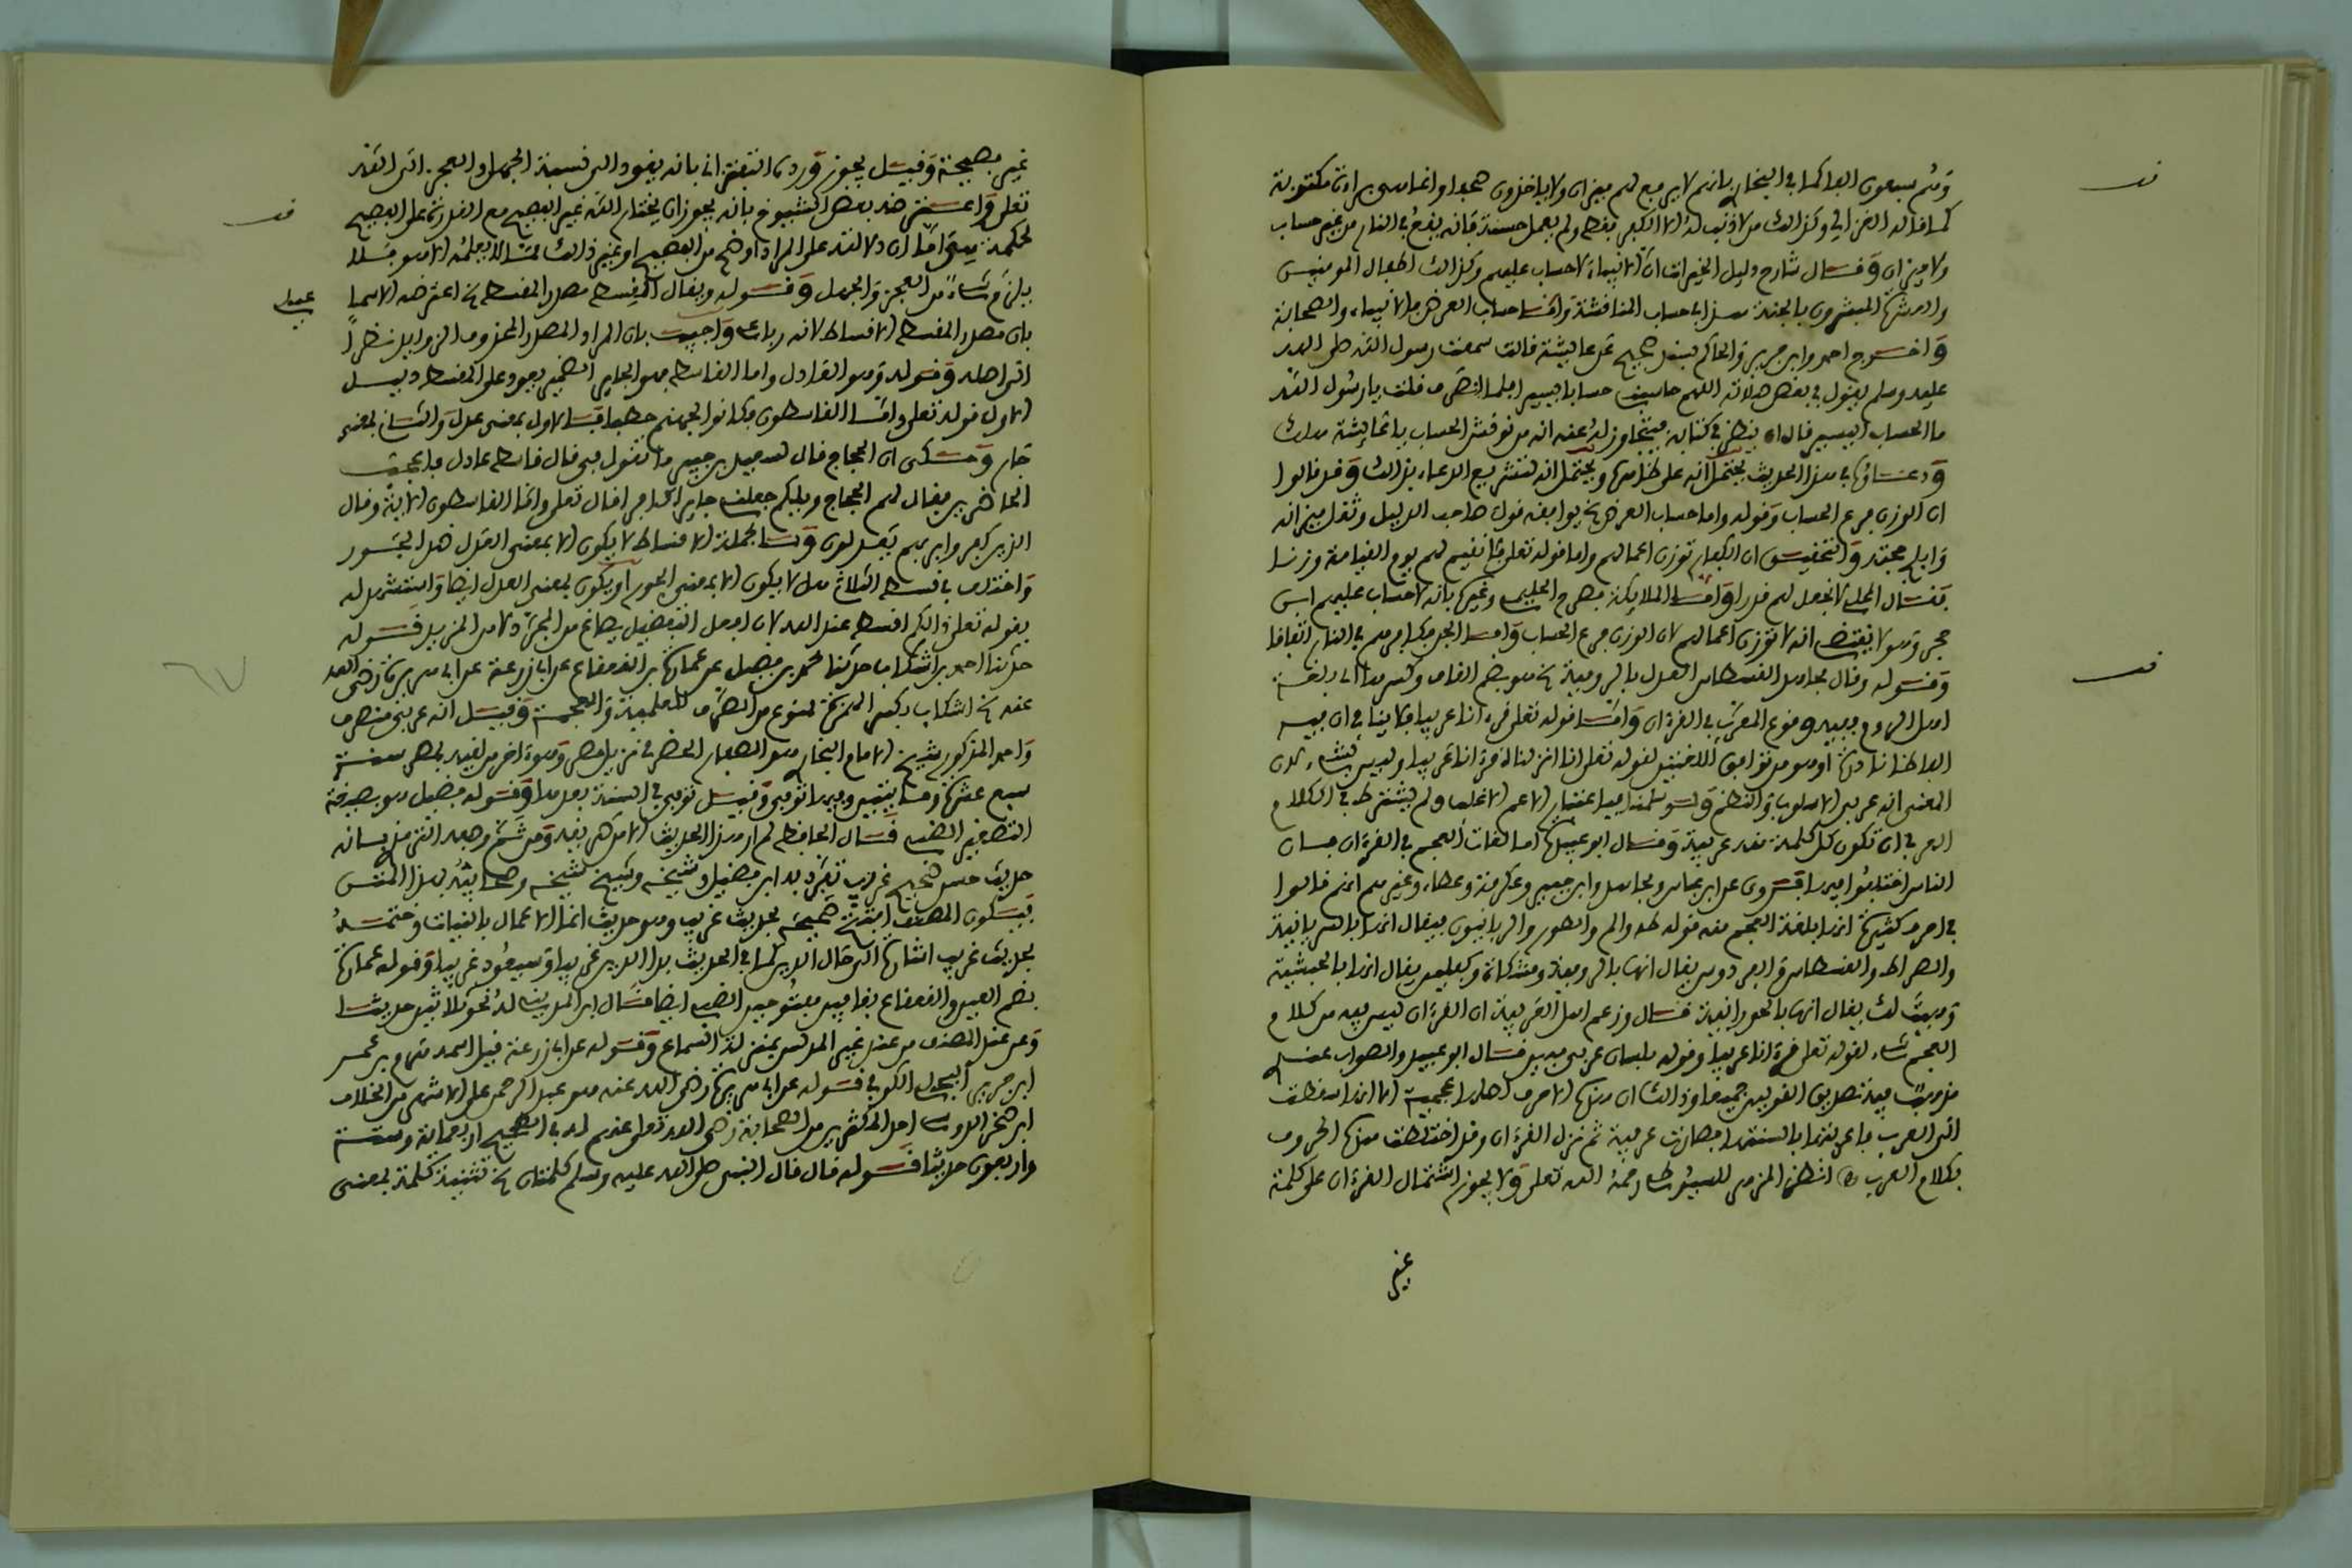 وهم سبعون الفا كما في البخاري بانهم لا يرفع لهم ميزان ولا ياخذون صحفا وانما هي براءة مكتوبة
كما قاله الغزالي وكذالك من لا ذنب له الا الكفر فقط ولم يعمل حسنة فانه يقع في النار من غير حساب
ولا ميزان وقال شارح دليل الخيرات ان الانبياء لا حساب عليهم وكذالك اطفال المومنين
والعشرة المبشرون بالجنة هذا في حساب المناقشة واما حساب العرض فللانبياء والصحابة
واخرج احمد وابن جرير والحاكم بسند صحيح عن عايشة قالت سمعت رسول الله صلى الله
عليه وسلم يقول في بعض صلاته اللهم حاسبني حسابا يسيرا فلما انصرف قلت يا رسول الله
ما الحساب اليسير قال ان ينظر في كتابه فيتجاوز له عنه انه من نوقش الحساب يا عايشة هلك
ودعاؤه في هذا الحديث يحتمل انه على ظاهره ويحتمل انه لتشريع الدعاء بذالك وقد قالوا
ان الوزن فرع الحساب وقوله واما حساب العرض الخ يوافقه قول صاحب الدليل وثقل ميزانه
وابلج حجته والتحقيق ان الكفار توزن اعمالهم واما قوله تعلى فلا نقيم لهم يوم القيامة وزنا
فقال المحلي لا نجعل لهم قدرا واما الملايكة فصرح الحليمي وغيره بانه لا حساب عليهم ابن
حجر وهو لا يقتضي انه لا توزن اعمالهم لان الوزن فرع الحساب واما الجن فكافرهم في النار اتفاقا
وقوله وقال مجاهد القسطاس العدل بالرومية الخ هو بضم القاف وكسرها اي بلغة
اهل الروم ففيه وقوع المعرب في القرءان واما قوله تعلى قرءانا عربيا فلا ينافي ان فيه
الفاظا نادرة او هو من توافق اللغتين لقوله تعلى انا انزلناه قرءانا عربيا وليس بشيء لان
المعنى انه عربي الاسلوب والنظم ولو سلمنا فباعتبار الاعم الاغلب ولم يشترط في الكلام
العربي ان تكون كل كلمة منه عربية وقال ابو عبيدة اما لغات العجم في القرءان فان
الناس اختلفوا فيها فروي عن ابن عباس ومجاهد وابن جبير وعكرمة وعطاء وغيرهم انهم قالوا
في احرف كثيرة انها بلغة العجم منه قوله طه واليم والطور والربانيون فيقال انها بالسريانية
والصراط والقسطاس والفردوس يقال انها بالرومية ومشكاة وكفلين يقال انها بالحبشية
وهيت لك يقال انها بالحورانية قال وزعم اهل العربية ان القرءان ليس فيه من كلام
العجم شيء لقوله تعلى قرءانا عربيا وقوله بلسان عربي مبين قال ابو عبيد والصواب عندي
مذهب فيه تصديق القولين جميعا وذالك ان هذه الاحرف اصلها عجمية الا انها سقطت
الى العرب فاعربتها بالسنتها فصارت عربية ثم نزل القرءان وقد اختلطت هذه الحروف
بكلام العرب اه انظر المزهر للسيوطي رحمه الله تعلى ولا يجوز اشتمال القرءان على كلمة
غير
غير فصيحة وقيل يجوز ورده التفتزاني بانه يقود الى نسبة الجهل او العجز الى الله
تعلى واعترضه بعض الشيوخ بانه يجوز ان يختار الله غير الفصيح مع القدرة على الفصيح
لحكمة هي اما ان دلالته على المراد اوضح من الفصيح او غير ذالك مما لا يعلمه الا هو فلا
يلزم شيء من العجز والجهل وقوله ويقال القسط مصدر المقسط الخ اعترضه الاسماعيلي
بان مصدر المقسط الاقساط لانه رباعي واجيب بان المراد المصدر المحذوف الزوايد نظرا
الى اصله وقوله وهو العادل واما القاسط فهو الجاير الضمير يعود على المقسط ودليل
الاول قوله تعلى واما القاسطون فكانوا لجهنم حطبا فالاول بمعنى عدل والثاني بمعنى
جار وحكى ان الحجاج قال لسعيد بن جبير ما تقول في قال قاسط عادل فاعجب
الحاضرين فقال لهم الحجاج ويلكم جعلني جايرا كافرا قال تعلى واما القاسطون الاية وقال
الذين كفروا بربهم يعدلون وبالجملة الاقساط لا يكون الا بمعنى العدل ضد الجور
واختلف في قسط الثلاثي هل لا يكون الا بمعنى الجور او يكون بمعنى العدل ايضا واستشهد له
بقوله تعلى ذالكم اقسط عند الله لان افعل التفضيل يصاغ من المجرد لا من المزيد قوله
حدثنا احمد بن اشكاب حدثنا محمد بن فضيل عن عمارة بن القعقاع عن ابي زرعة عن ابي هريرة رضي الله
عنه الخ اشكاب بكسر الهمزة ممنوع من الصرف للعلمية والعجمة وقيل انه عربي منصرف
واحمد المذكور شيخ الامام البخاري هو الصفار الحضرمي نزيل مصر وهو ءاخر من لقيه بمصر سنة
سبع عشرة ومايتين وفيها توفي وقيل توفي في السنة بعدها وقوله فضيل هو بصيغة
التصغير الضبي قال الحافظ لم ار هذا الحديث الا من طريقه ومن ثم وصفه الترمذي بانه
حديث حسن صحيح غريب تفرد به ابن فضيل وشيخه وشيخ شيخه وصحابيه بهذا المتن
فيكون المصنف افتتح صحيحه بحديث غريب وهو حديث انما الاعمال بالنيات وختمه
بحديث غريب اشارة الى حال الدين كما في الحديث بدا الدين غريبا وسيعود غريبا وقوله عمارة
بضم العين والقعقاع بقافين مفتوحتين الضبي ايضا قال ابن المديني له نحو ثلاثين حديثا
وعن عند المصنف من عند غير المدلس بمنزلة السماع وقوله عن ابي زرعة قيل اسمه هرم بن عمر
ابن جرير البجلي الكوفي قوله عن ابي هريرة رضي الله عنه هو عبد الرحمن على الاشهر من الخلاف
ابن صخر الدوسي احد المكثرين من الصحابة رضي الله تعلى عنهم له في الصحيح اربعمائة وستة
واربعون حديثا قوله قال قال النبي صلى الله عليه وسلم كلمتان الخ تثنية كلمة بمعنى